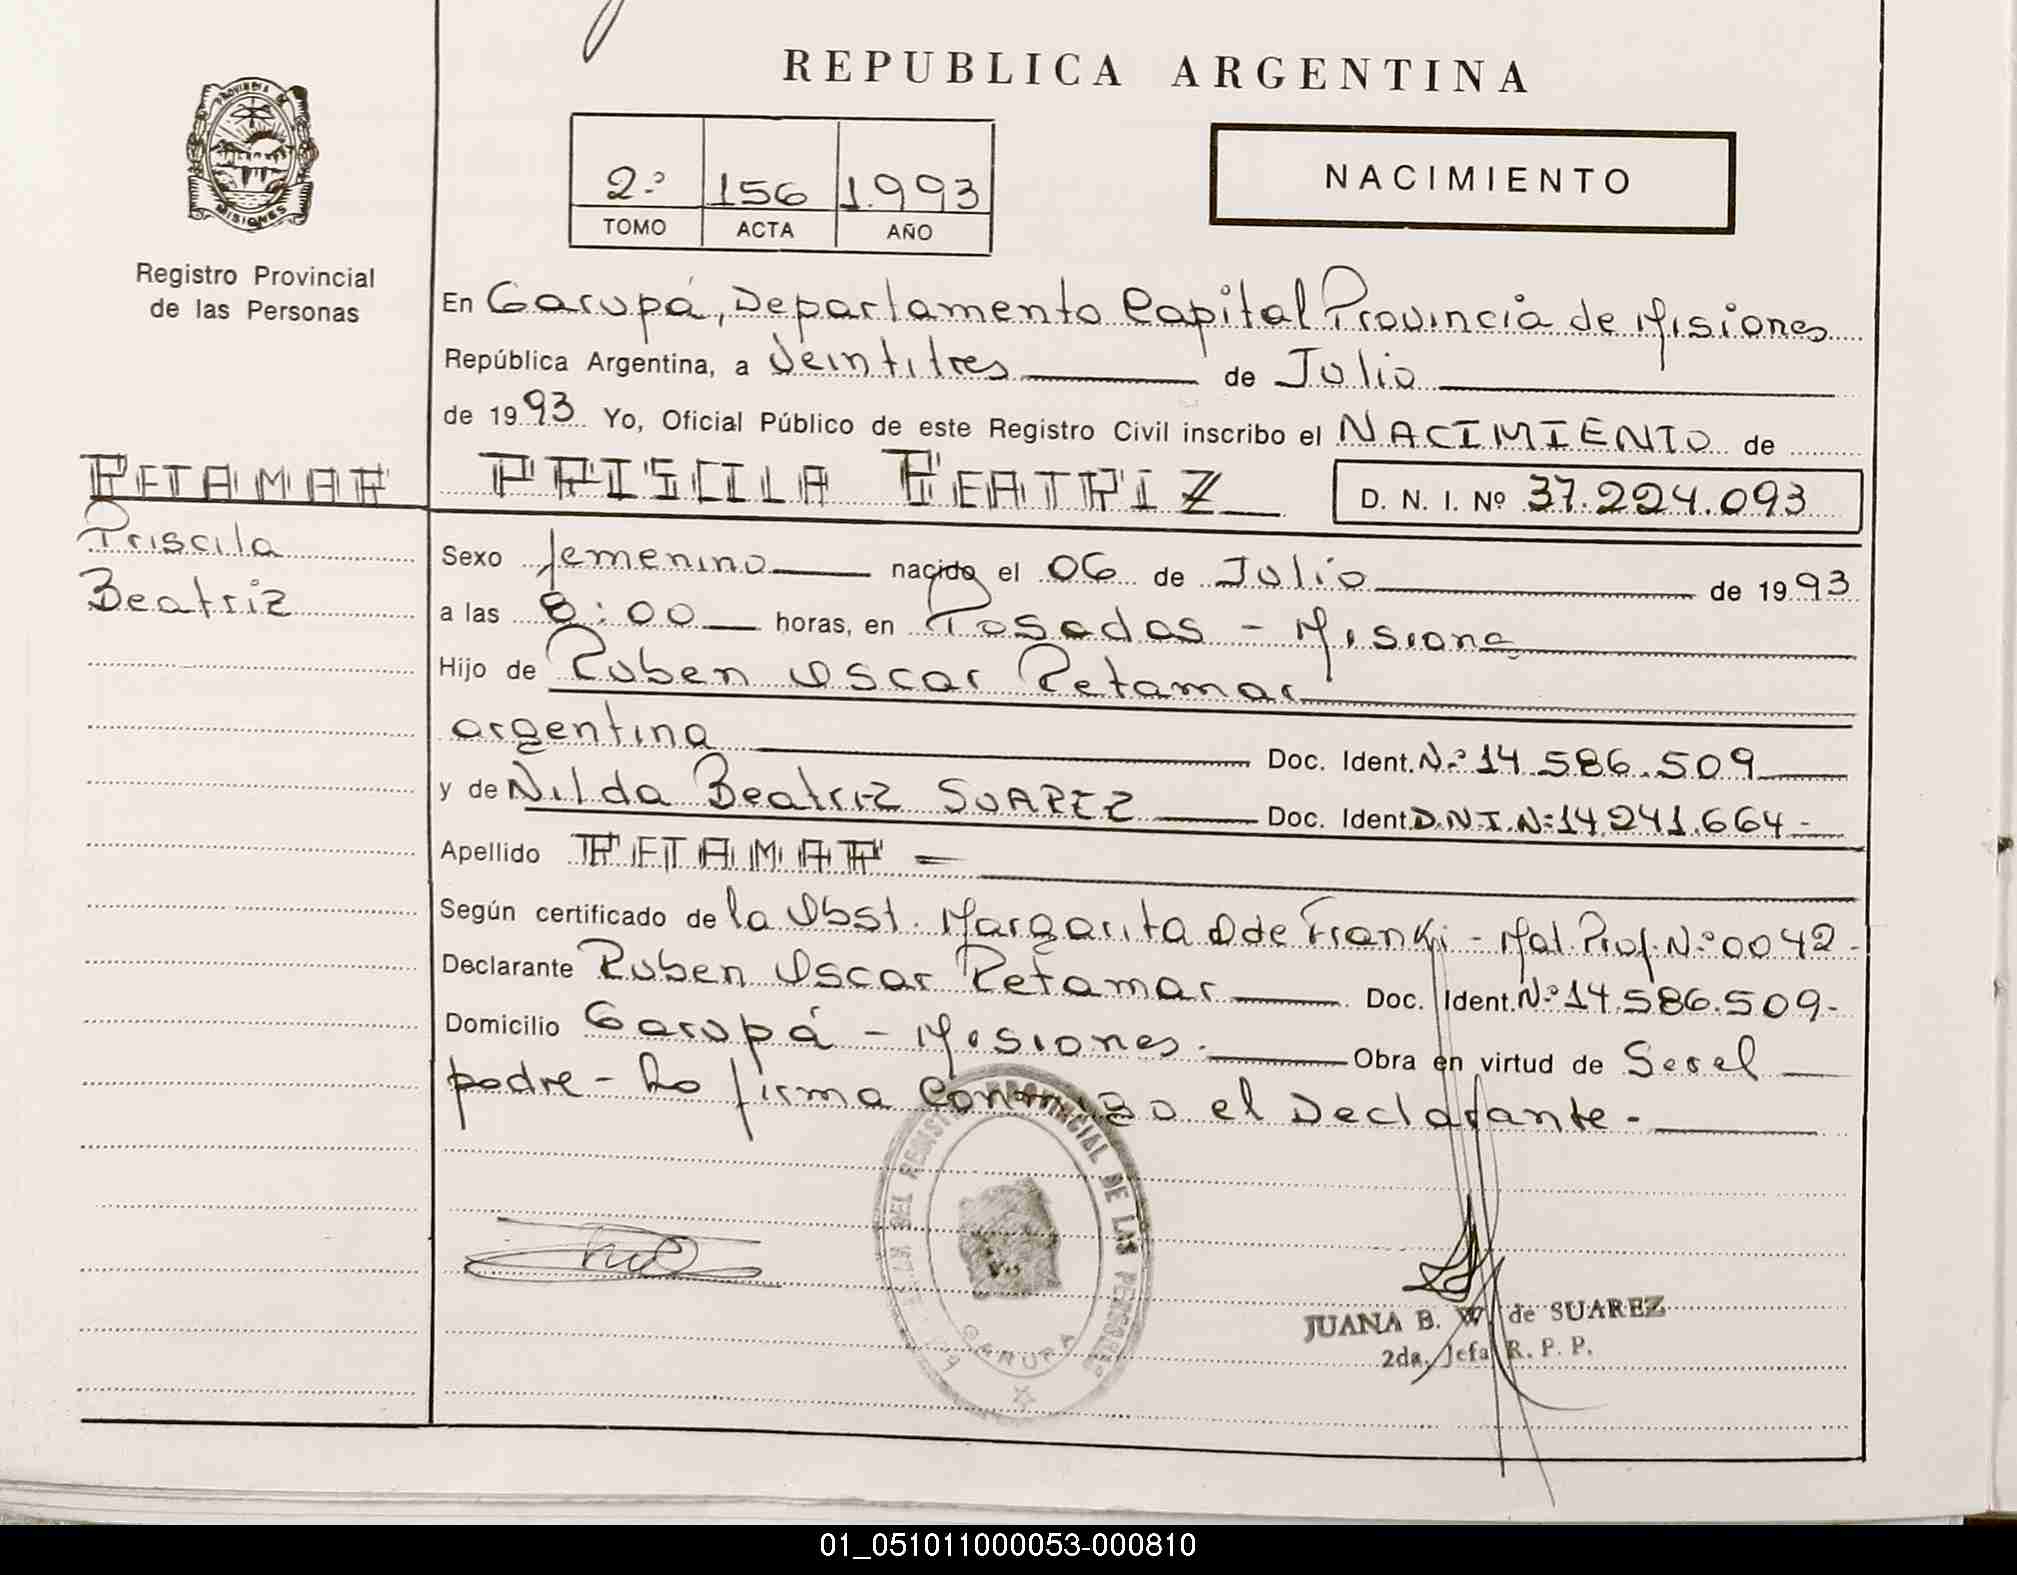 REPUBLICA ARGENTINA
PROVINCIA DE
MISIONES
Registro Provincial
de las Personas
2º 156 1.993
TOMO ACTA AÑO
NACIMIENTO
En Garupá, Departamento Capital Provincia de Misiones
República Argentina, a Veintitres de Julio
de 1993 Yo, Oficial Público de este Registro Civil inscribo el NACIMIENTO de
RETAMAR PRISCILA BEATRIZ D. N. I. Nº 37.224.093
Priscila
Beatriz
Sexo femenino nacido el 06 de Julio de 1993
a las 8:00 horas, en Posadas - Misiones
Hijo de Ruben Oscar Retamar
argentina Doc. Ident. Nº 14.586.509
y de Nilda Beatriz SUAREZ Doc. Ident. D.N.I. Nº 14.241.664-
Apellido RETAMAR -
Según certificado de la Obst. Margarita D de Franki - Mat. Prof. Nº 0042-
Declarante Ruben Oscar Retamar Doc. Ident. Nº 14.586.509-
Domicilio Garupá - Misiones. Obra en virtud de Ser el
padre - Lo firma Conmigo el Declarante.-
DEL REGISTRO PROVINCIAL DE LAS PERSONAS
GARUPA
JUANA B. W. de SUAREZ
2da. Jefa R. P. P.
01_051011000053-000810